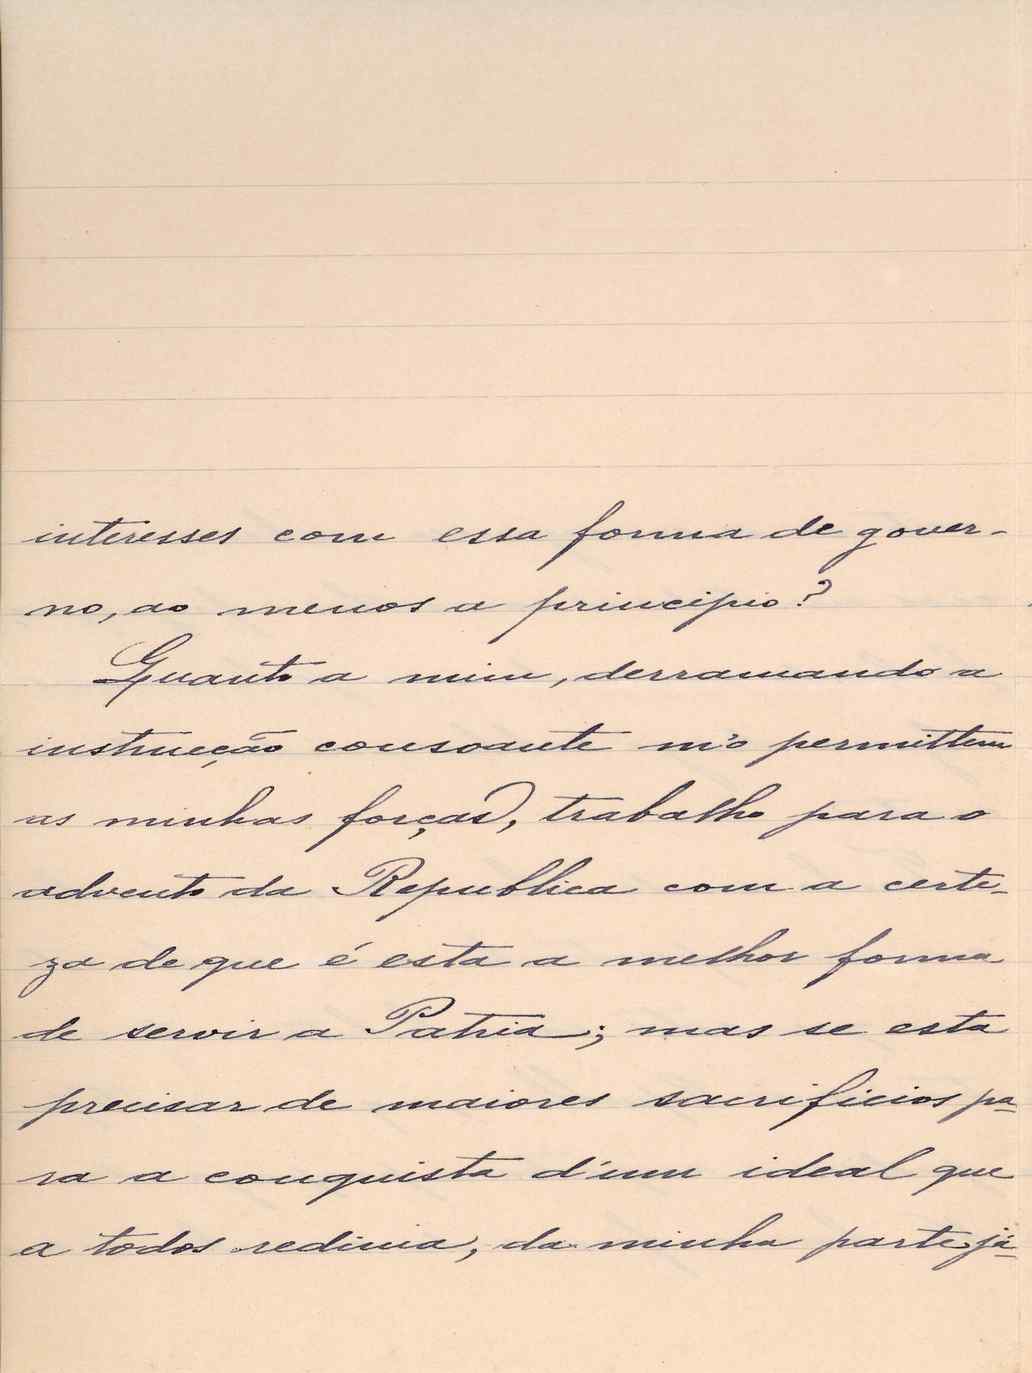 interesses com essa forma de gover-
no, ao menos a principio?
Quanto a mim, derramando a
instrucção consoante m'o permittem
as minhas forças, trabalho para o
advento da Republica com a certe-
za de que é esta a melhor forma
de servir a Patria; mas se esta
precisar de maiores sacrificios pa-
ra a conquista d'um ideal que
a todos redima, da minha parte já-